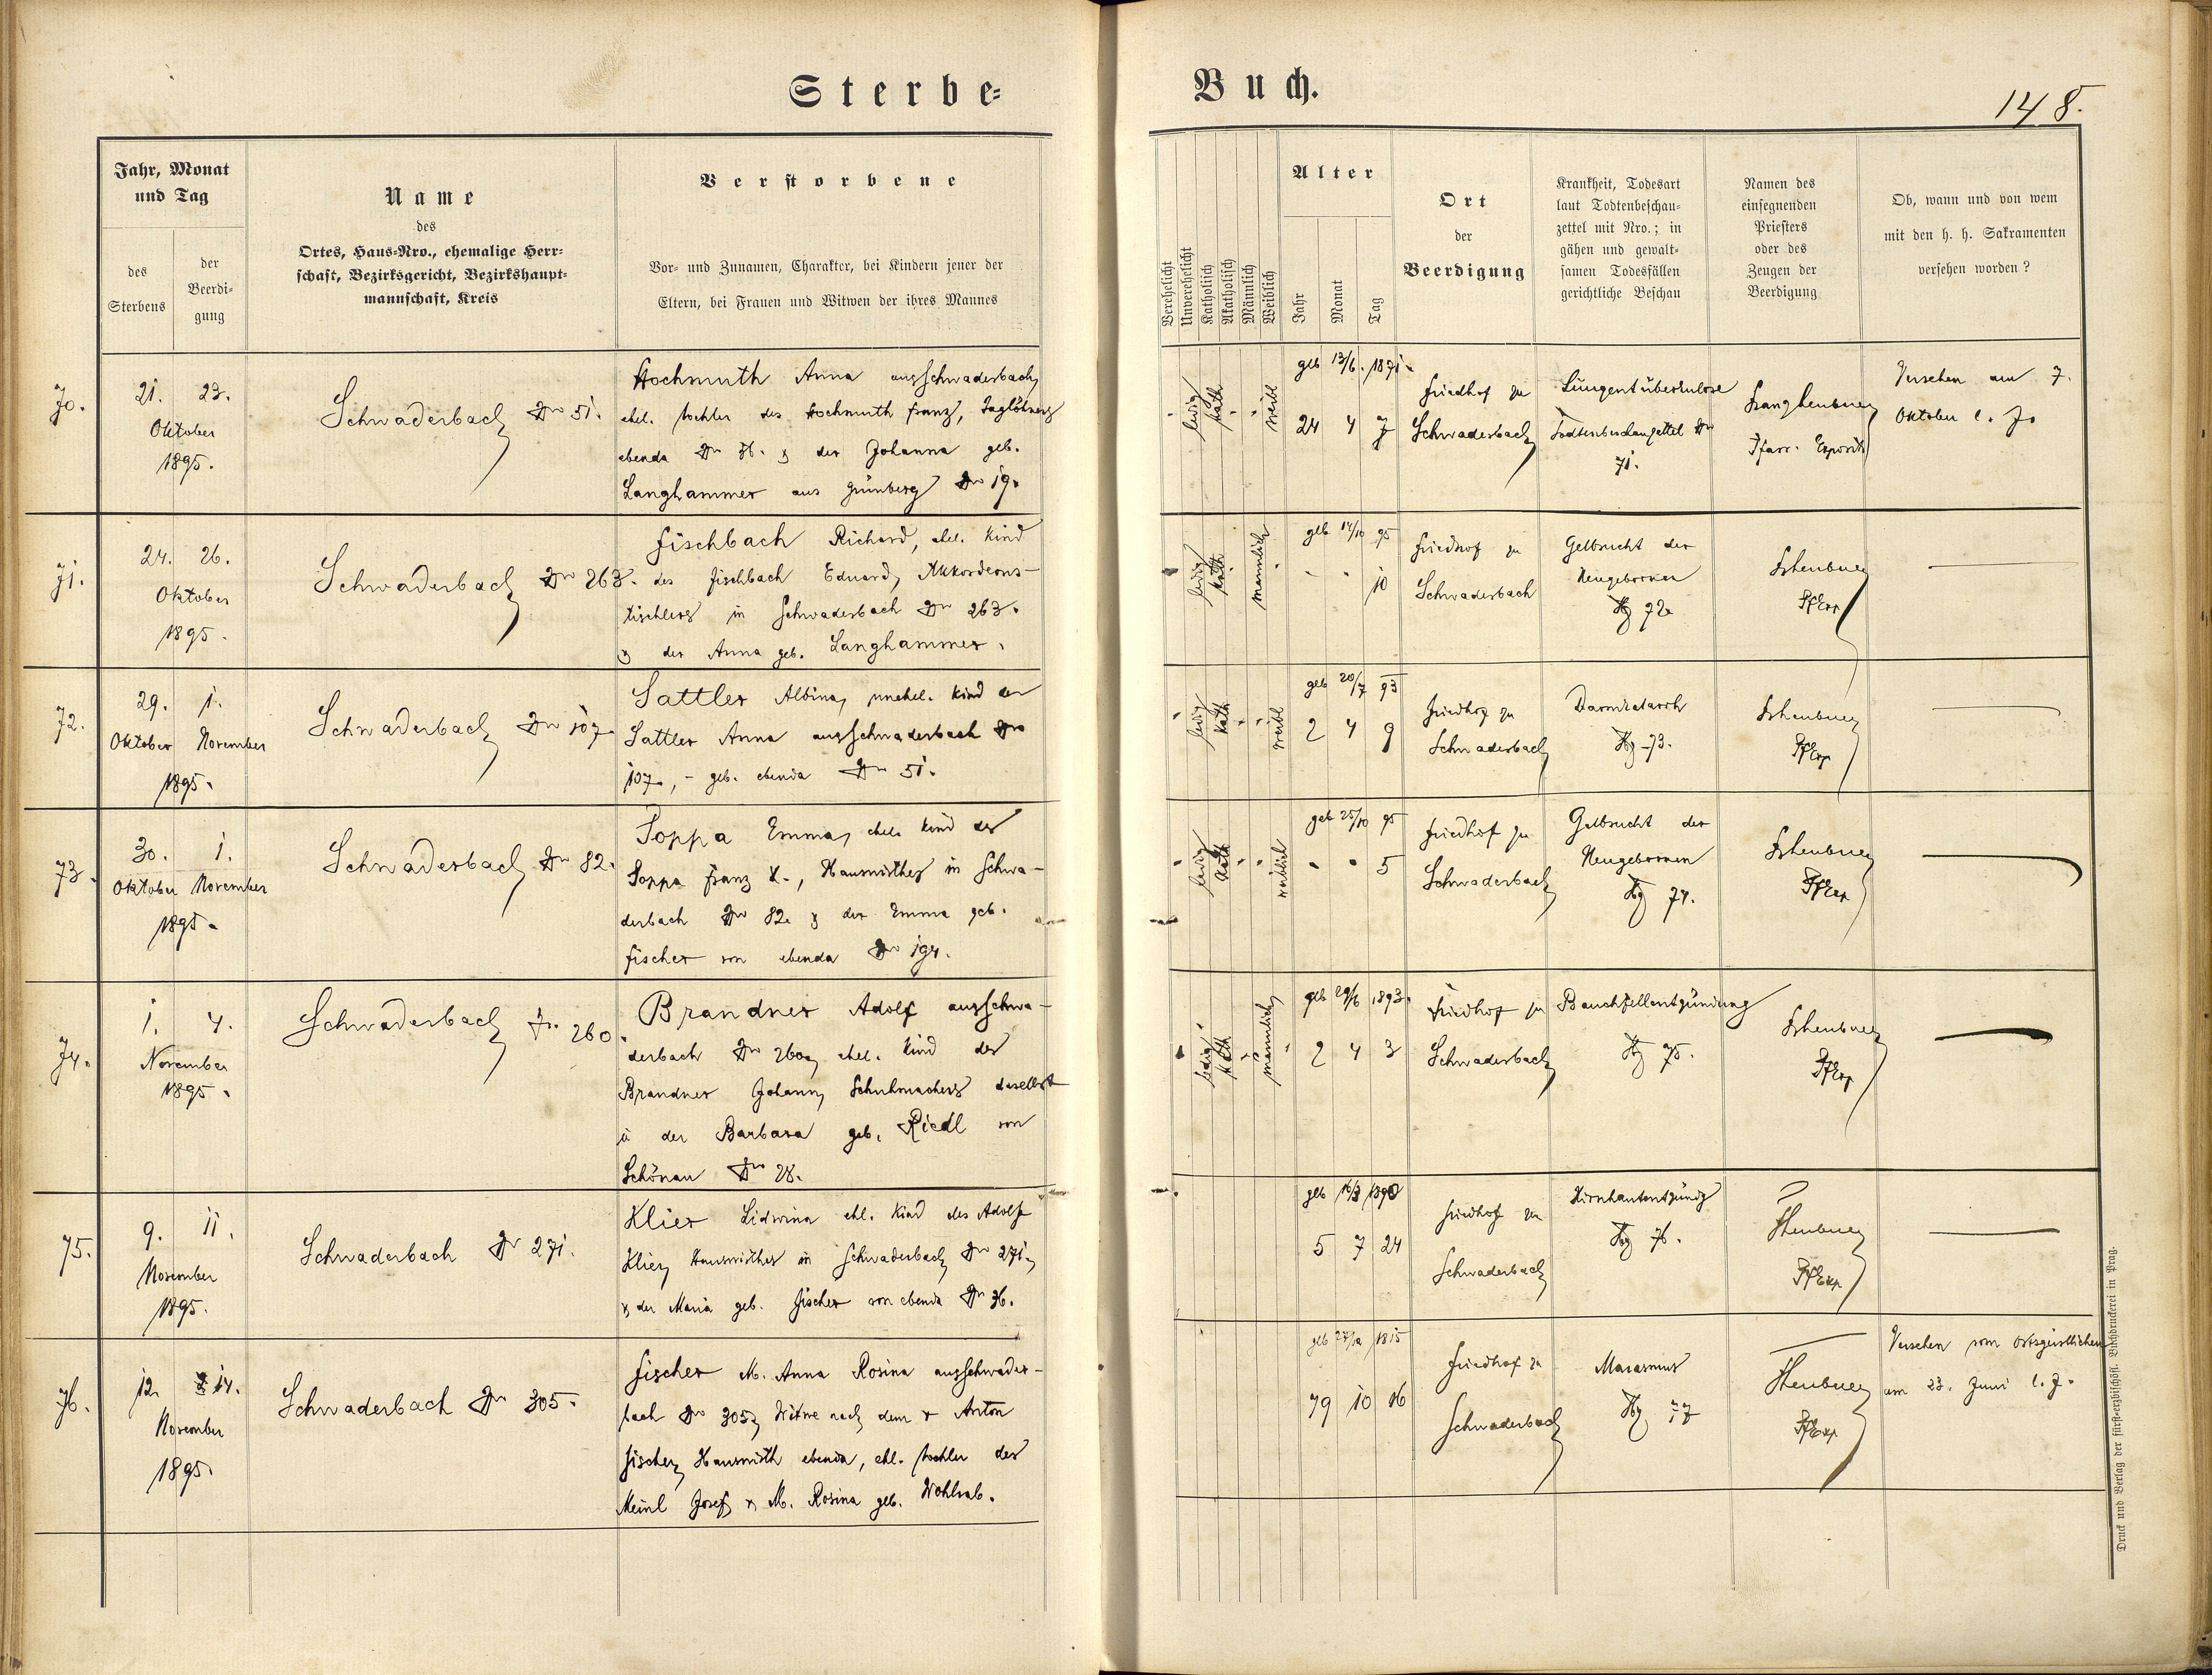 Sterbe-
Buch.
148.
Jahr, Monat
und Tag
des
Sterbens
der
Beerdi-
gung
Name
des
Ortes, Haus-Nro., ehemalige Herr-
schaft, Bezirksgericht, Bezirkshaupt-
mannschaft, Kreis
Verstorbene
Vor- und Zunamen, Charakter, bei Kindern jener der
Eltern, bei Frauen und Witwen der ihres Mannes
Verehelicht
Unverehelicht
Katholisch
Akatholisch
Männlich
Weiblich
Alter
Jahr
Monat
Tag
Ort
der
Beerdigung
Krankheit, Todesart
laut Todtenbeschau-
zettel mit Nro.; in
gähen und gewalt-
samen Todesfällen
gerichtliche Beschau
Namen des
einsegnenden
Priesters
oder des
Zeugen der
Beerdigung
Ob, wann und von wem
mit den h. h. Sakramenten
versehen worden?
70.
21. 23.
Oktober
1895.
Schwaderbach Nr 51.
Hochmuth Anna aus Schwaderbach,
ehel. Tochter des Hochmuth Franz, Taglöhners
ebenda Nr 36. & der Johanna geb.
Langhammer aus Grünberg Nr 19.
ledig
kath
weibl
geb 13/6. 1871.
24 4 7
Friedhof zu
Schwaderbach
Lungentuberkulose
Todtenbeschauzettel Nr
71.
Pfarr. Exposit
Versehen am 7.
Oktober l. J.
71.
24. 26.
Oktober
1895.
Schwaderbach Nr 263.
Fischbach Richard, ehel. Kind
des Fischbach Eduard, Akkordeons-
tischlers in Schwaderbach Nr 263.
& der Anna geb. Langhammer.
ledig
kath
männlich
geb 14/10 95
10
Friedhof zu
Schwaderbach
Gelbsucht der
Neugebornen
72.
PfExp
72.
29. 1.
Oktober November
1895.
Schwaderbach Nr 107.
Sattler Albina, unehel. Kind der
Sattler Anna aus Schwaderbach Nr
107., - geb. ebenda Nr 51.
ledig
kath
weibl
geb 20/7 93
2 4 9
Friedhof zu
Schwaderbach
Darmkatarrh
73.
PfExp
73.
30. 1.
Oktober November
1895.
Schwaderbach Nr 82.
Poppa Emma, ehel. Kind des
Poppa Franz X., Hauswirthes in Schwa-
derbach Nr 82. & der Emma geb.
Fischer von ebenda Nr 194.
ledig
kath
weiblich
geb 25/10 95
5
Friedhof zu
Schwaderbach
Gelbsucht der
Neugebornen
74.
PfExp
74.
1. 4.
November
1895.
Schwaderbach Nr. 260
Brandner Adolf aus Schwa-
derbach Nr 260, ehel. Kind des
Brandner Johann, Schuhmachers daselbst
u der Barbara geb. Riedl von
Schönau Nr 28.
ledig
kath
männlich
geb 29/6 1893.
2 4 3
Friedhof zu
Schwaderbach
Bauchfellentzündung
75.
PfExp
75.
9. 11.
November
1895.
Schwaderbach Nr 271.
Klier Lidwina ehl. Kind des Adolf
Klier, Hauswirthes in Schwaderbach Nr 271.,
& der Maria geb. Fischer von ebenda Nr 36.
geb 16/3 1890
5 7 24
Friedhof zu
Schwaderbach
Hirnhautentzündg
76.
PfExp.
76.
12. 14.
November
1895.
Schwaderbach Nr 305.
Fischer M. Anna Rosina aus Schwader-
bach Nr 305, Witwe nach dem † Anton
Fischer, Hauswirth ebenda, ehl. Tochter des
Meinl Josef & M. Rosina geb. Wohlrab.
geb 27/12 1815
79 10 16
Friedhof zu
Schwaderbach
Marasmus
77
PfExp.
Versehen vom Ortsgeistlichen
am 23. Juni l. J.
Druck und Verlag der fürst-erzbischöfl. Buchdruckerei in Prag.